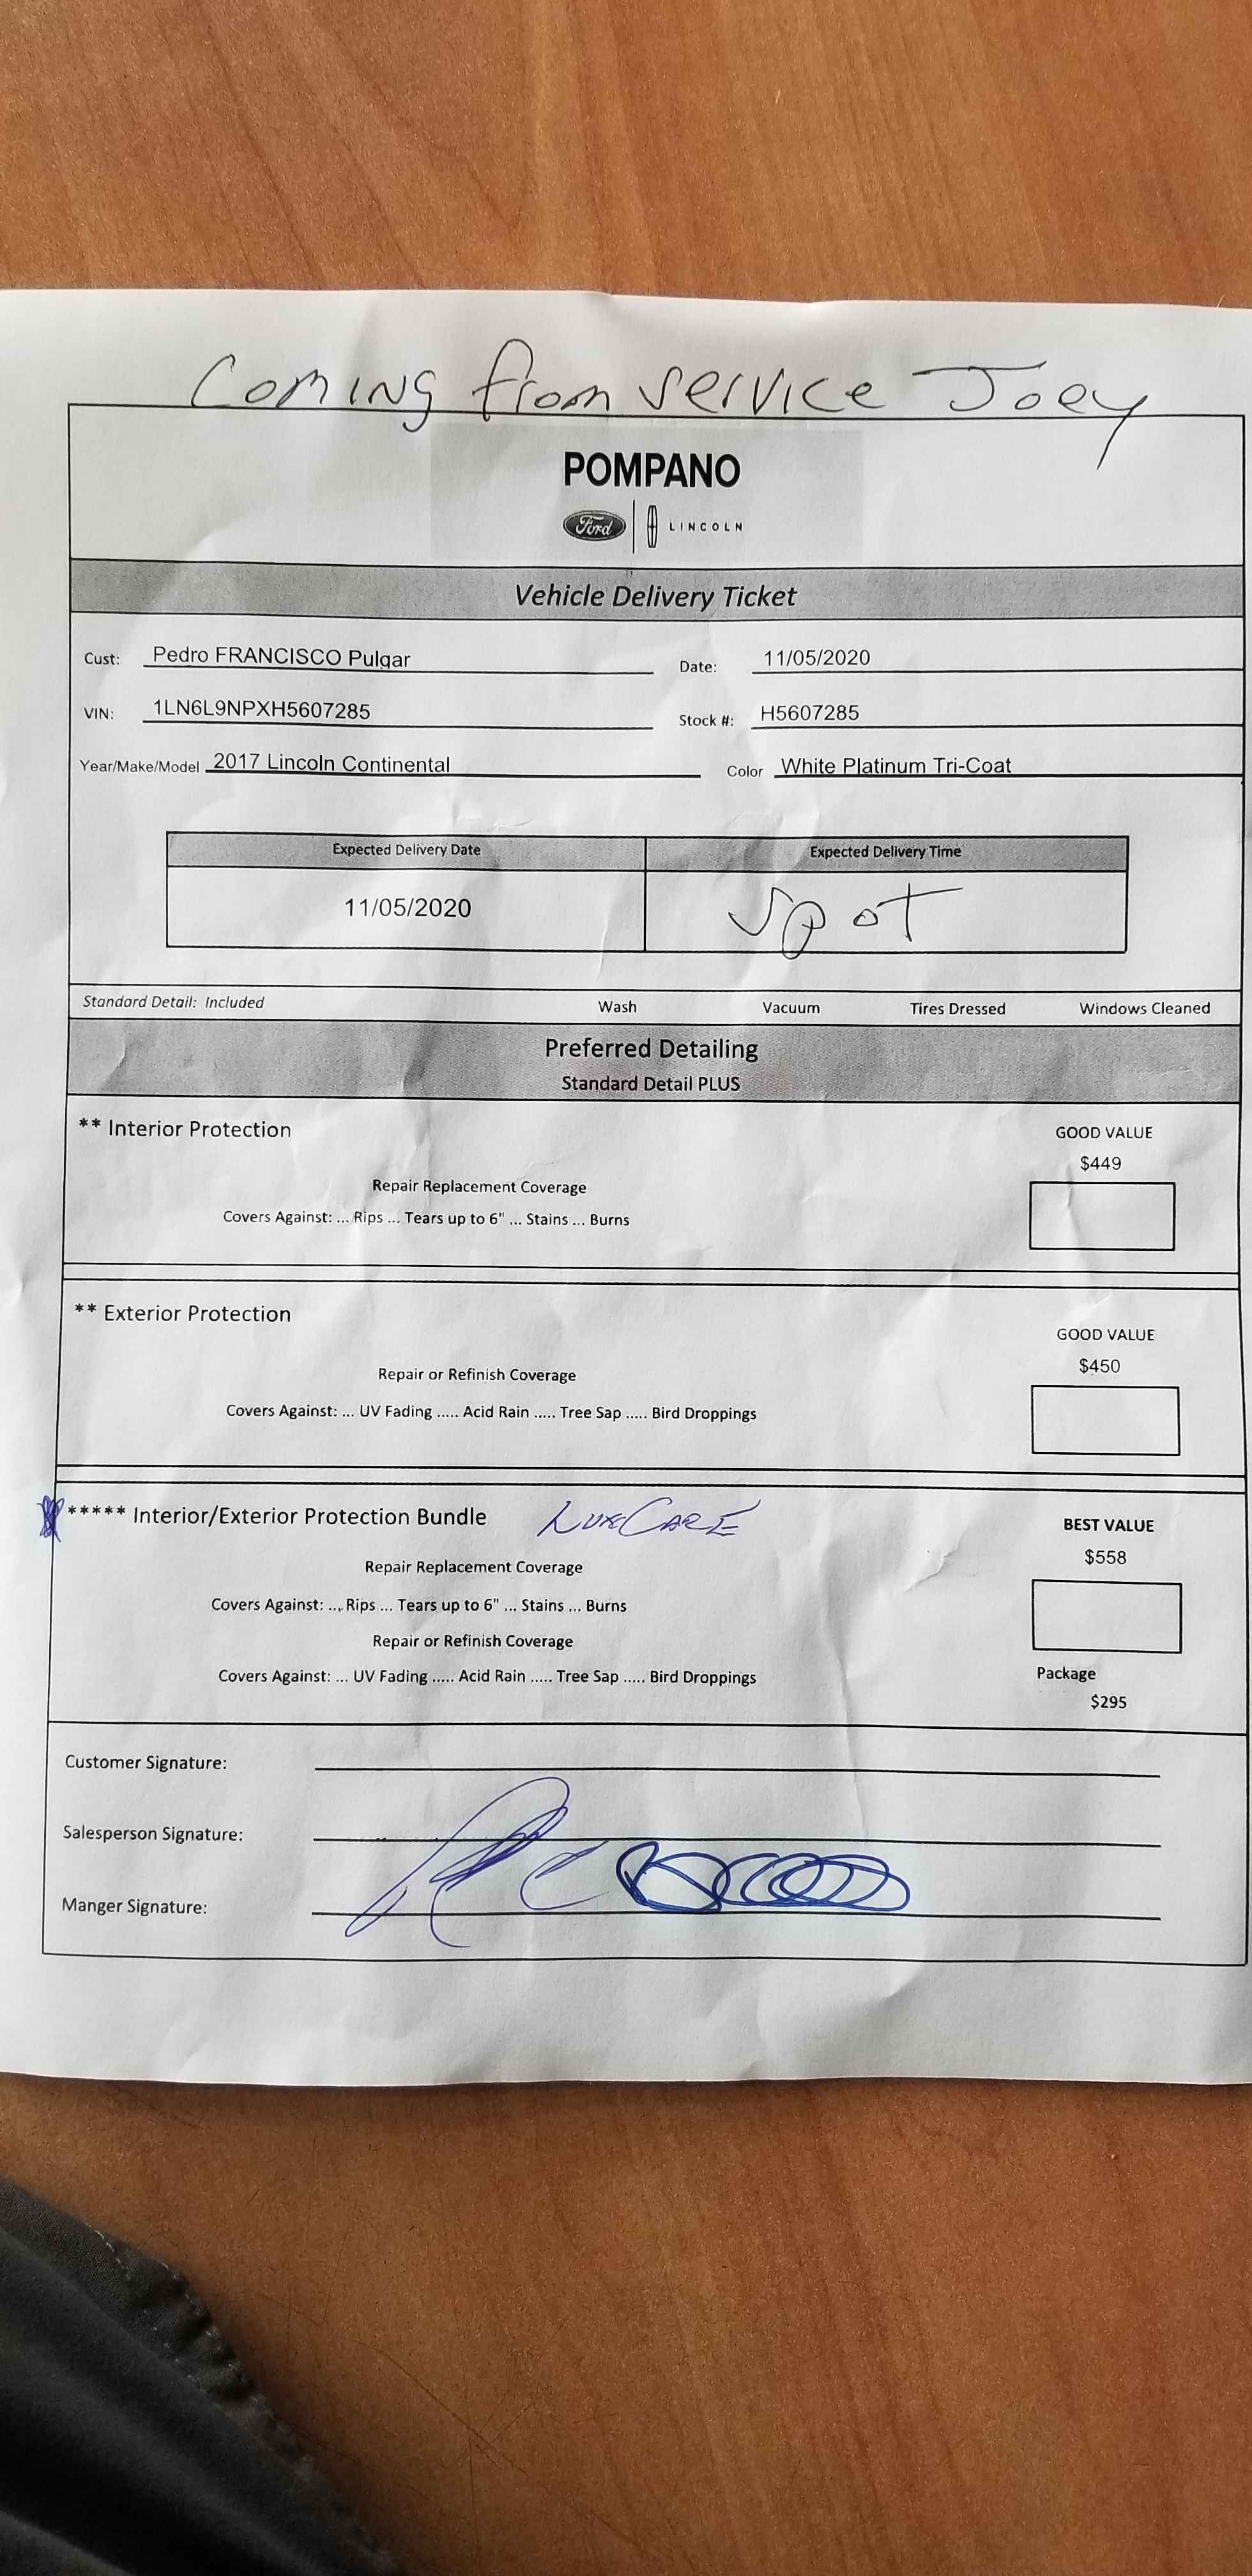 Coming from service Joey
POMPANO
Ford | LINCOLN
Vehicle Delivery Ticket
Cust: Pedro FRANCISCO Pulgar Date: 11/05/2020
VIN: 1LN6L9NPXH5607285 Stock #: H5607285
Year/Make/Model 2017 Lincoln Continental Color White Platinum Tri-Coat
Expected Delivery Date Expected Delivery Time
11/05/2020 spot
Standard Detail: Included Wash Vacuum Tires Dressed Windows Cleaned
Preferred Detailing
Standard Detail PLUS
** Interior Protection GOOD VALUE
$449
Repair Replacement Coverage
Covers Against: ... Rips ... Tears up to 6" ... Stains ... Burns
** Exterior Protection
GOOD VALUE
$450
Repair or Refinish Coverage
Covers Against: ... UV Fading ..... Acid Rain ..... Tree Sap ..... Bird Droppings
***** Interior/Exterior Protection Bundle LUXCARE BEST VALUE
$558
Repair Replacement Coverage
Covers Against: ... Rips ... Tears up to 6" ... Stains ... Burns
Repair or Refinish Coverage
Covers Against: ... UV Fading ..... Acid Rain ..... Tree Sap ..... Bird Droppings Package
$295
Customer Signature:
Salesperson Signature:
Manger Signature: